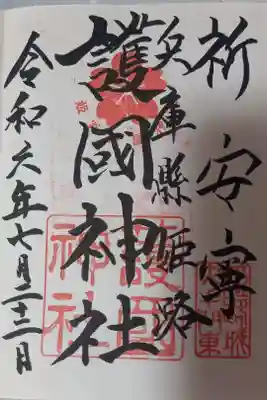 祈安寧
兵庫縣姫路
護國神社
令和六年七月二十三日
護国
神社